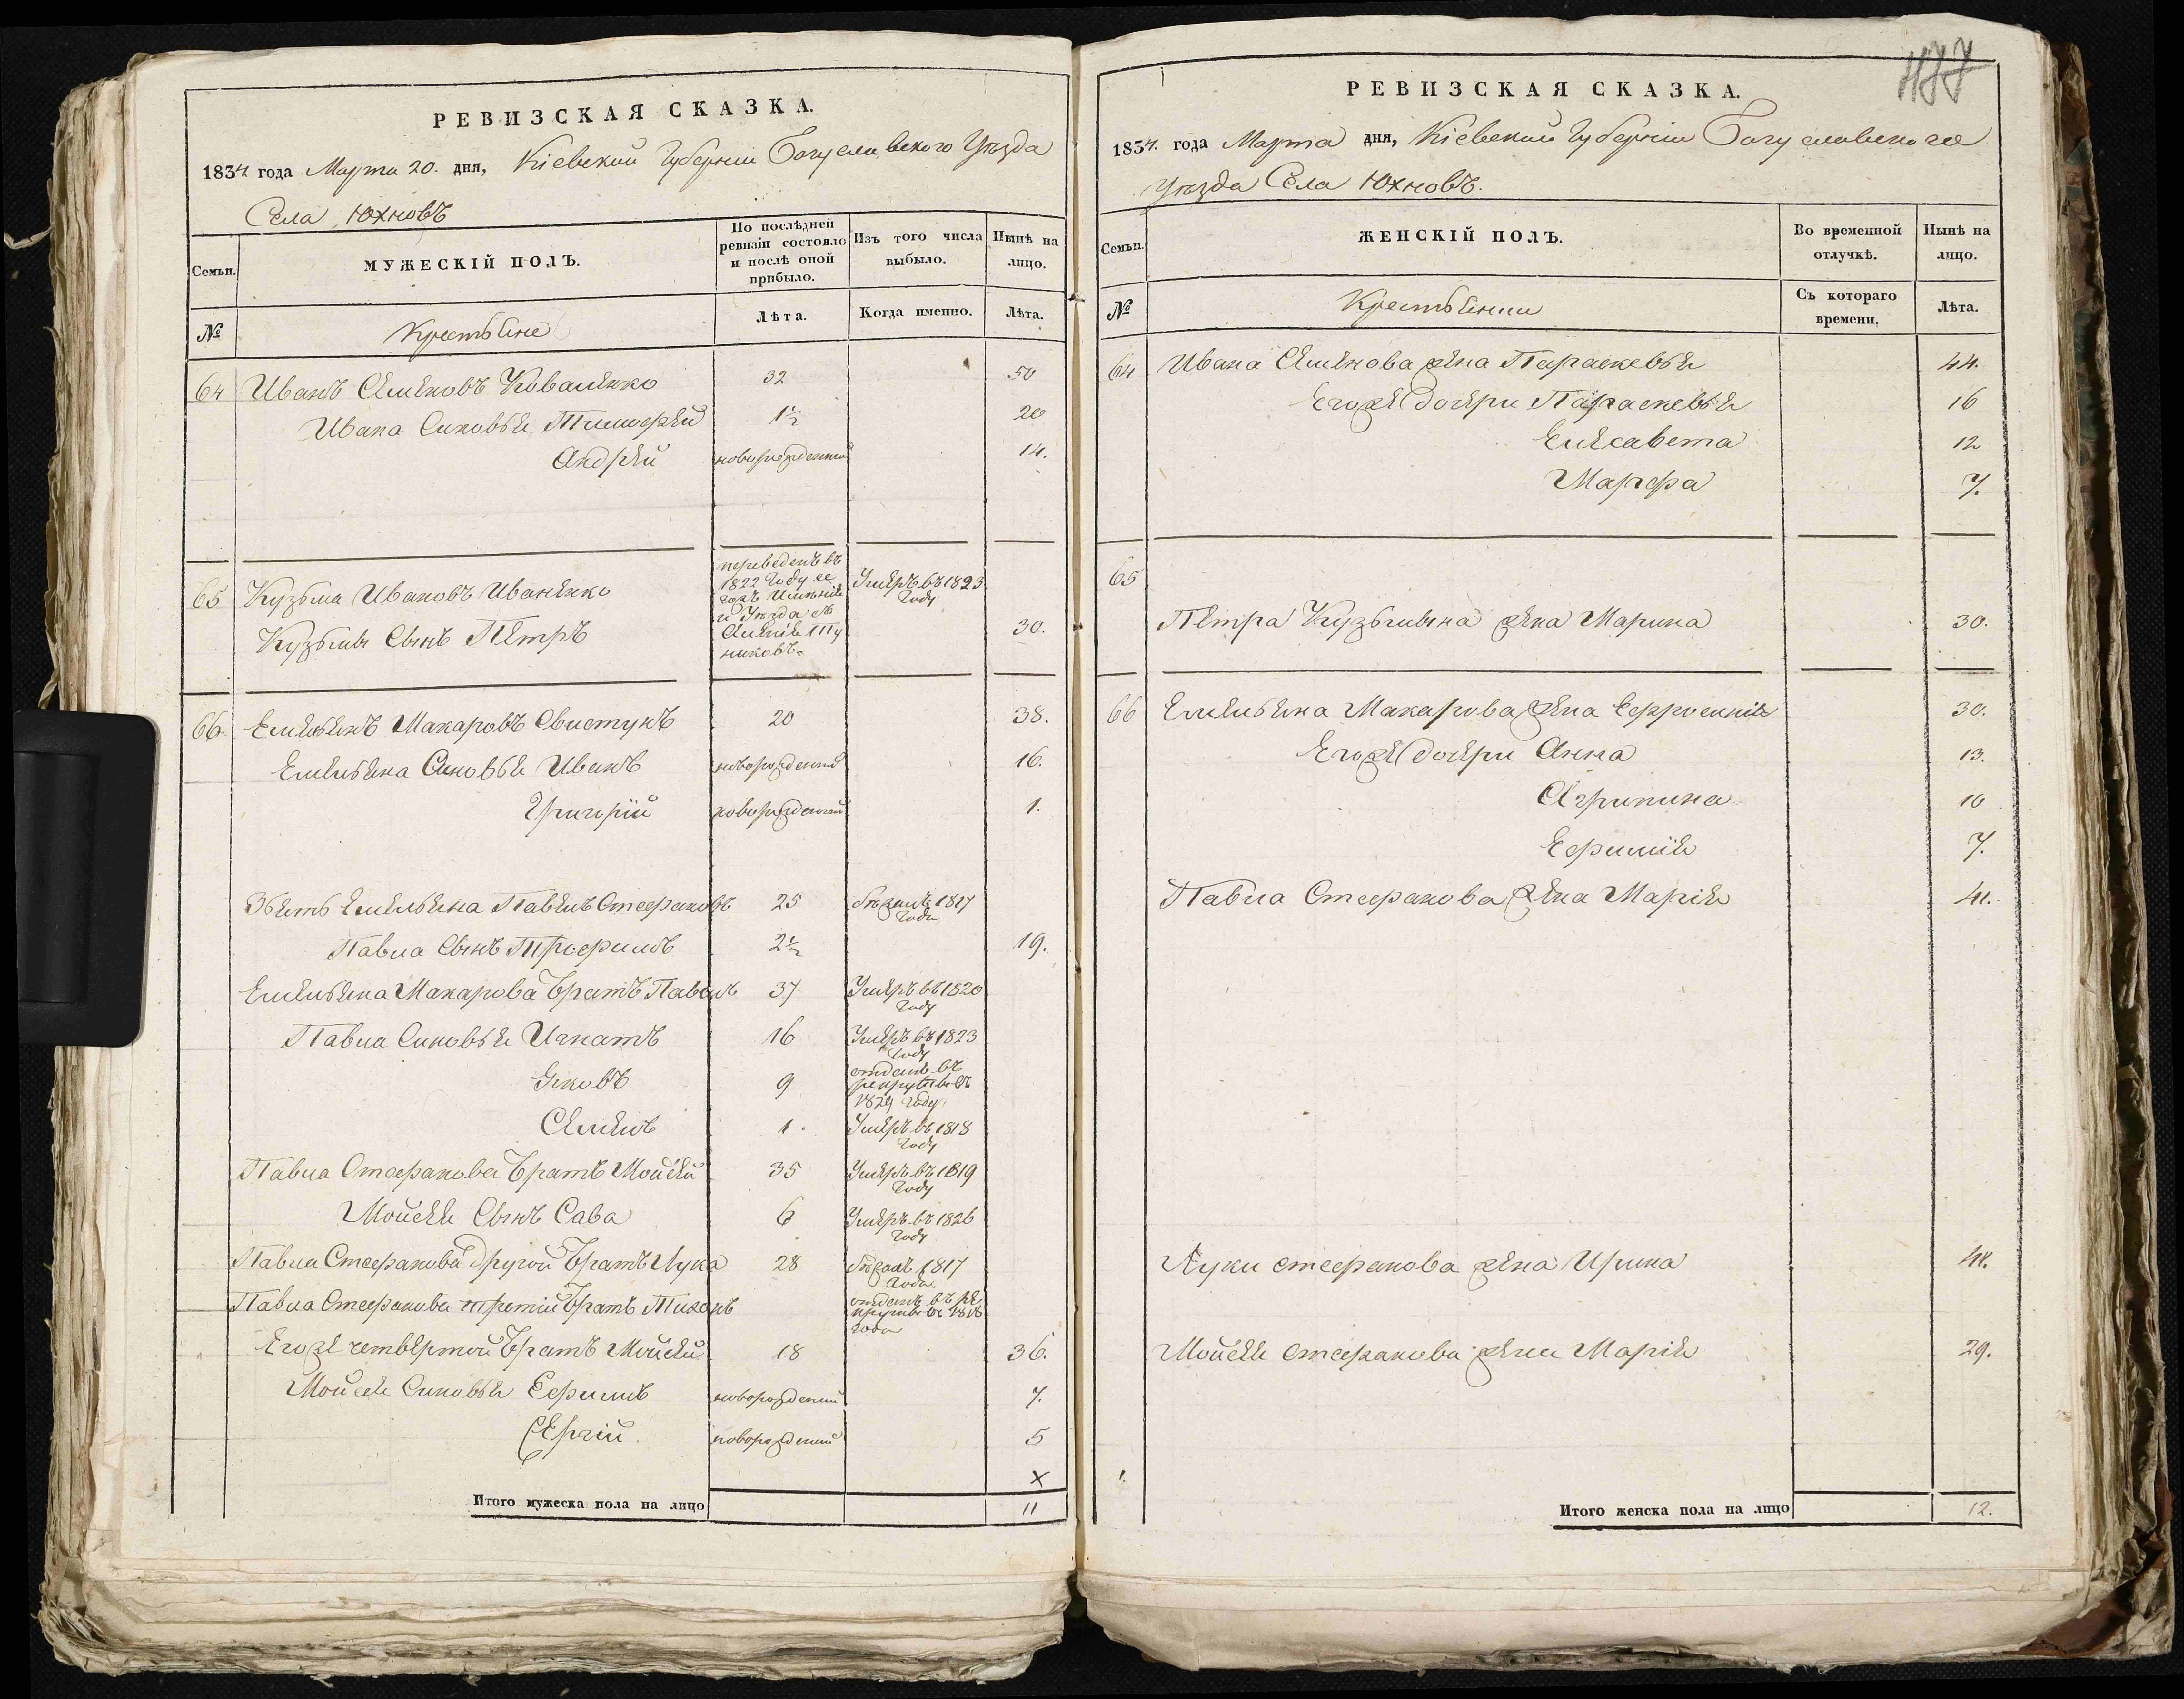 РЕВИЗСКАЯ СКАЗКА.
1834 года Марта 20. дня, Кіевской Губерніи Богуславского Уѣзда
Села Юхновъ
Семьи.
МУЖЕСКІЙ ПОЛЪ.
По послѣдней ревизіи состояло и послѣ оной прибыло.
Изъ того числа выбыло.
Нынѣ на лицо.
№
Крестьяне
Лѣта.
Когда именно.
Лѣта.
64 Иванъ Семеновъ Коваленко 32 50
Ивана Сыновья Тимофей 1½ 20
Андрей новорожденный 14.
65 Кузьма Ивановъ Иваненко
переведенъ въ
1822 Году се
гожъ Имѣнія
и Уѣзда съ
Умеръ въ 1823
Году
Кузьмы Сынъ Петръ 30.
66 Емельянъ Макаровъ Свистунъ 20 38.
Емельяна Сыновья Иванъ новорожденный 16.
Григорій новорожденный 1.
Зять Емельяна Павелъ Стефановъ 25 Бѣжалъ 1817
Года
Павла Сынъ Трофимъ 2½ 19.
Емельяна Макарова Братъ Павелъ 37 Умеръ въ 1820
Году
Павла Сыновья Игнатъ 16 Умеръ въ 1823
Году
Яковъ 9 отданъ въ
рекруты въ
1829 Году
Семенъ 1. Умеръ въ 1818
Году
Павла Стефанова Братъ Мойсей 35 Умеръ въ 1819
Году
Мойсея Сынъ Сава 6 Умеръ въ 1826
Году
Павла Стефанова Другой Братъ Лука 28 Бѣжалъ 1817
Года
Павла Стефанова третій Братъ Тихонъ
отданъ въ ре
круты въ 1818
Года
Егоже четвертой Братъ Мойсей 18 36.
Мойсея Сыновья Ефимъ новорожденный 7.
Сергій новорожденный 5
х
Итого мужеска пола на лицо 11
РЕВИЗСКАЯ СКАЗКА.
1834. года Марта дня, Кіевской Губерніи Богуславского
Уѣзда Села Юхновъ.
Семьи.
ЖЕНСКІЙ ПОЛЪ.
Во временной отлучкѣ.
Нынѣ на лицо.
№
Крестьянки
Съ котораго времени.
Лѣта.
64 Ивана Семенова жена Параскевья 44.
Егоже дочери Параскевья 16
Елисавета 12
Марфа 7.
65
Петра Кузьмина жена Марина 30.
66 Емельяна Макарова жена Ефросинія 30.
Егоже дочери Анна 13.
Агрипина 10
Ефимія 7.
Павла Стефанова жена Марія 41.
Луки стефанова жена Ирина 48.
Мойсея стефанова жена Марія 29.
Итого женска пола на лицо 12.